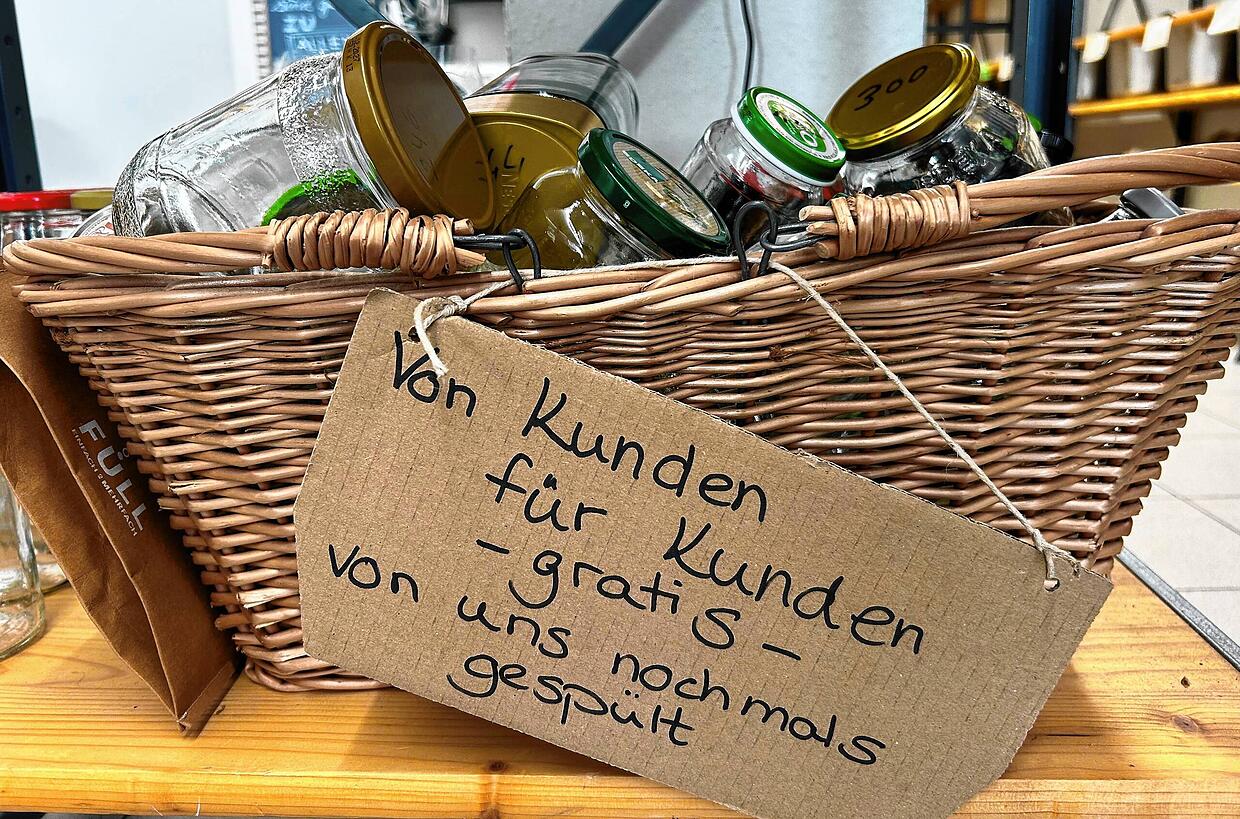 300
FÜLL
EINFACH & MEHRFACH
Von Kunden
für Kunden
- gratis -
von uns nochmals
gespült